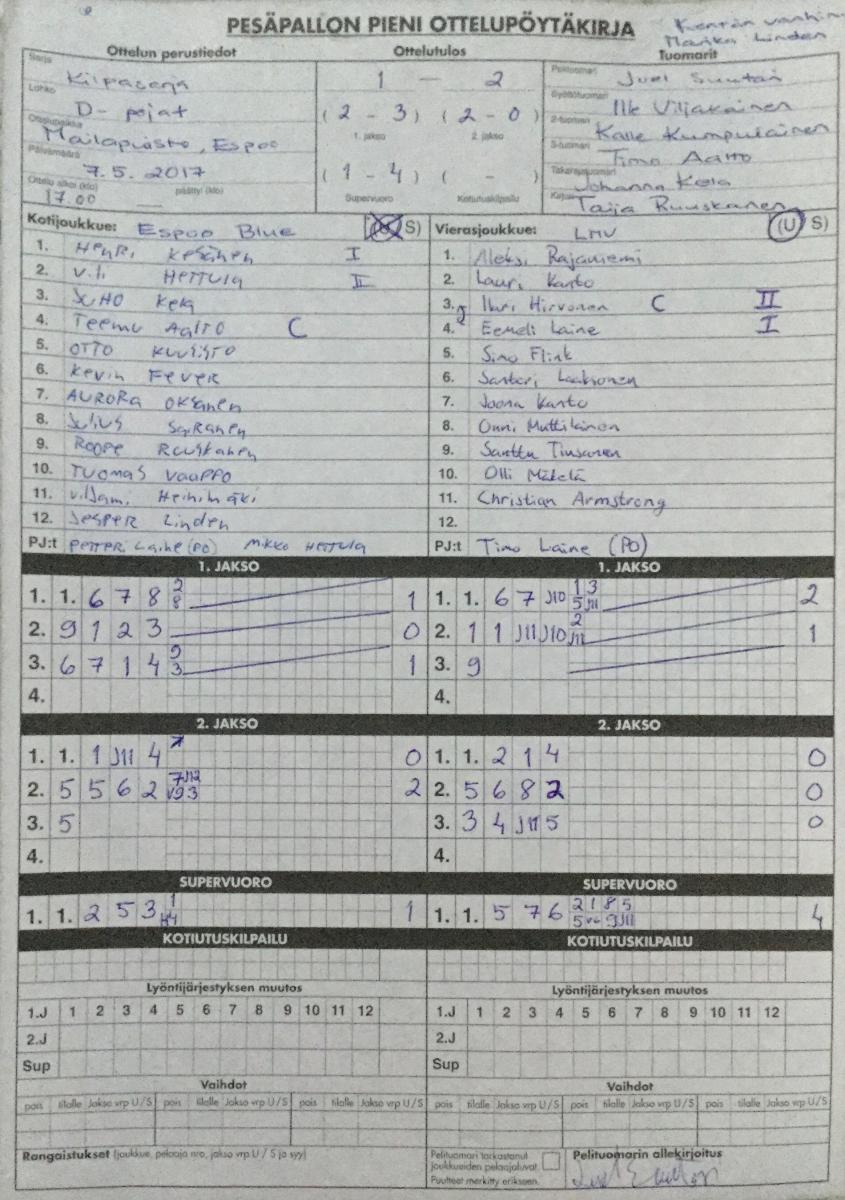 PESÄPALLON PIENI OTTELUPÖYTÄKIRJA
Kentän vanhin
Marika Linden
Ottelun perustiedot Ottelutulos Tuomarit
Sarja Kilpasarja
Lohko D-pojat
Ottelupaikka Mailapuisto, Espoo
Päivämäärä 7.5.2017
Ottelu alkoi (klo) 17.00 päättyi (klo)
1 — 2
(2 - 3) (2 - 0)
1. jakso 2. jakso
(1 - 4) ( - )
Supervuoro Kotiutuskilpailu
Pelituomari Juel
Syöttötuomari Ilk Viljakainen
2-tuomari Kalle Kumpulainen
3-tuomari Timo Aalto
Takarajatuomari Johanna Kela
Kirjuri Taija Ruuskanen
Kotijoukkue: Espoo Blue (U S)
1. Henri Kesänen I
2. Vili Hettula II
3. JUHO Kela
4. Teemu Aalto C
5. OTTO KUUSISTO
6. Kevin FEVER
7. AURORA OKSANEN
8. Julius Sariahen
9. ROOPE Ruuskanen
10. TUOMAS VAAPPO
11. Viljami Heinimäki
12. JESPER Linden
PJ:t PETTERI Laine (PO) MIKKO HETTULA
Vierasjoukkue: LMV (U S)
1. Aleksi Rajaniemi
2. Lauri Kanto
3. Ilari Hirvonen C II
4. Eemeli Laine I
5. Simo Flink
6. Santeri Laaksonen
7. Joona Kanto
8. Onni Muttilainen
9. Santtu Tiusanen
10. Olli Mäkelä
11. Christian Armstrong
12.
PJ:t Timo Laine (PO)
1. JAKSO 1. JAKSO
1. 1. 6 7 8 2 8 1 1. 1. 6 7 J10 1 3 5 J11 2
2. 9 1 2 3 0 2. 1 1 J11 J10 2 J11 1
3. 6 7 1 4 9 3 1 3. 9
4. 4.
2. JAKSO 2. JAKSO
1. 1. 1 J11 4 7 0 1. 1. 2 1 4 0
2. 5 5 6 2 7 J12 V9 3 2 2. 5 6 8 2 0
3. 5 3. 3 4 J11 5 0
4. 4.
SUPERVUORO SUPERVUORO
1. 1. 2 5 3 1 4 1 1. 1. 5 7 6 2 1 8 5 5 9 J11 4
KOTIUTUSKILPAILU KOTIUTUSKILPAILU
Lyöntijärjestyksen muutos Lyöntijärjestyksen muutos
1.J 1 2 3 4 5 6 7 8 9 10 11 12 1.J 1 2 3 4 5 6 7 8 9 10 11 12
2.J 2.J
Sup Sup
Vaihdot Vaihdot
pois tilalle Jakso vrp U/S pois tilalle Jakso vrp U/S pois tilalle Jakso vrp U/S pois tilalle Jakso vrp U/S pois tilalle Jakso vrp U/S pois tilalle Jakso vrp U/S
Rangaistukset (joukkue, pelaaja nro, jakso vrp U / S ja syy)
Pelituomari tarkastanut
joukkueiden pelaajaluvat
Puutteet merkitty erikseen.
Pelituomarin allekirjoitus